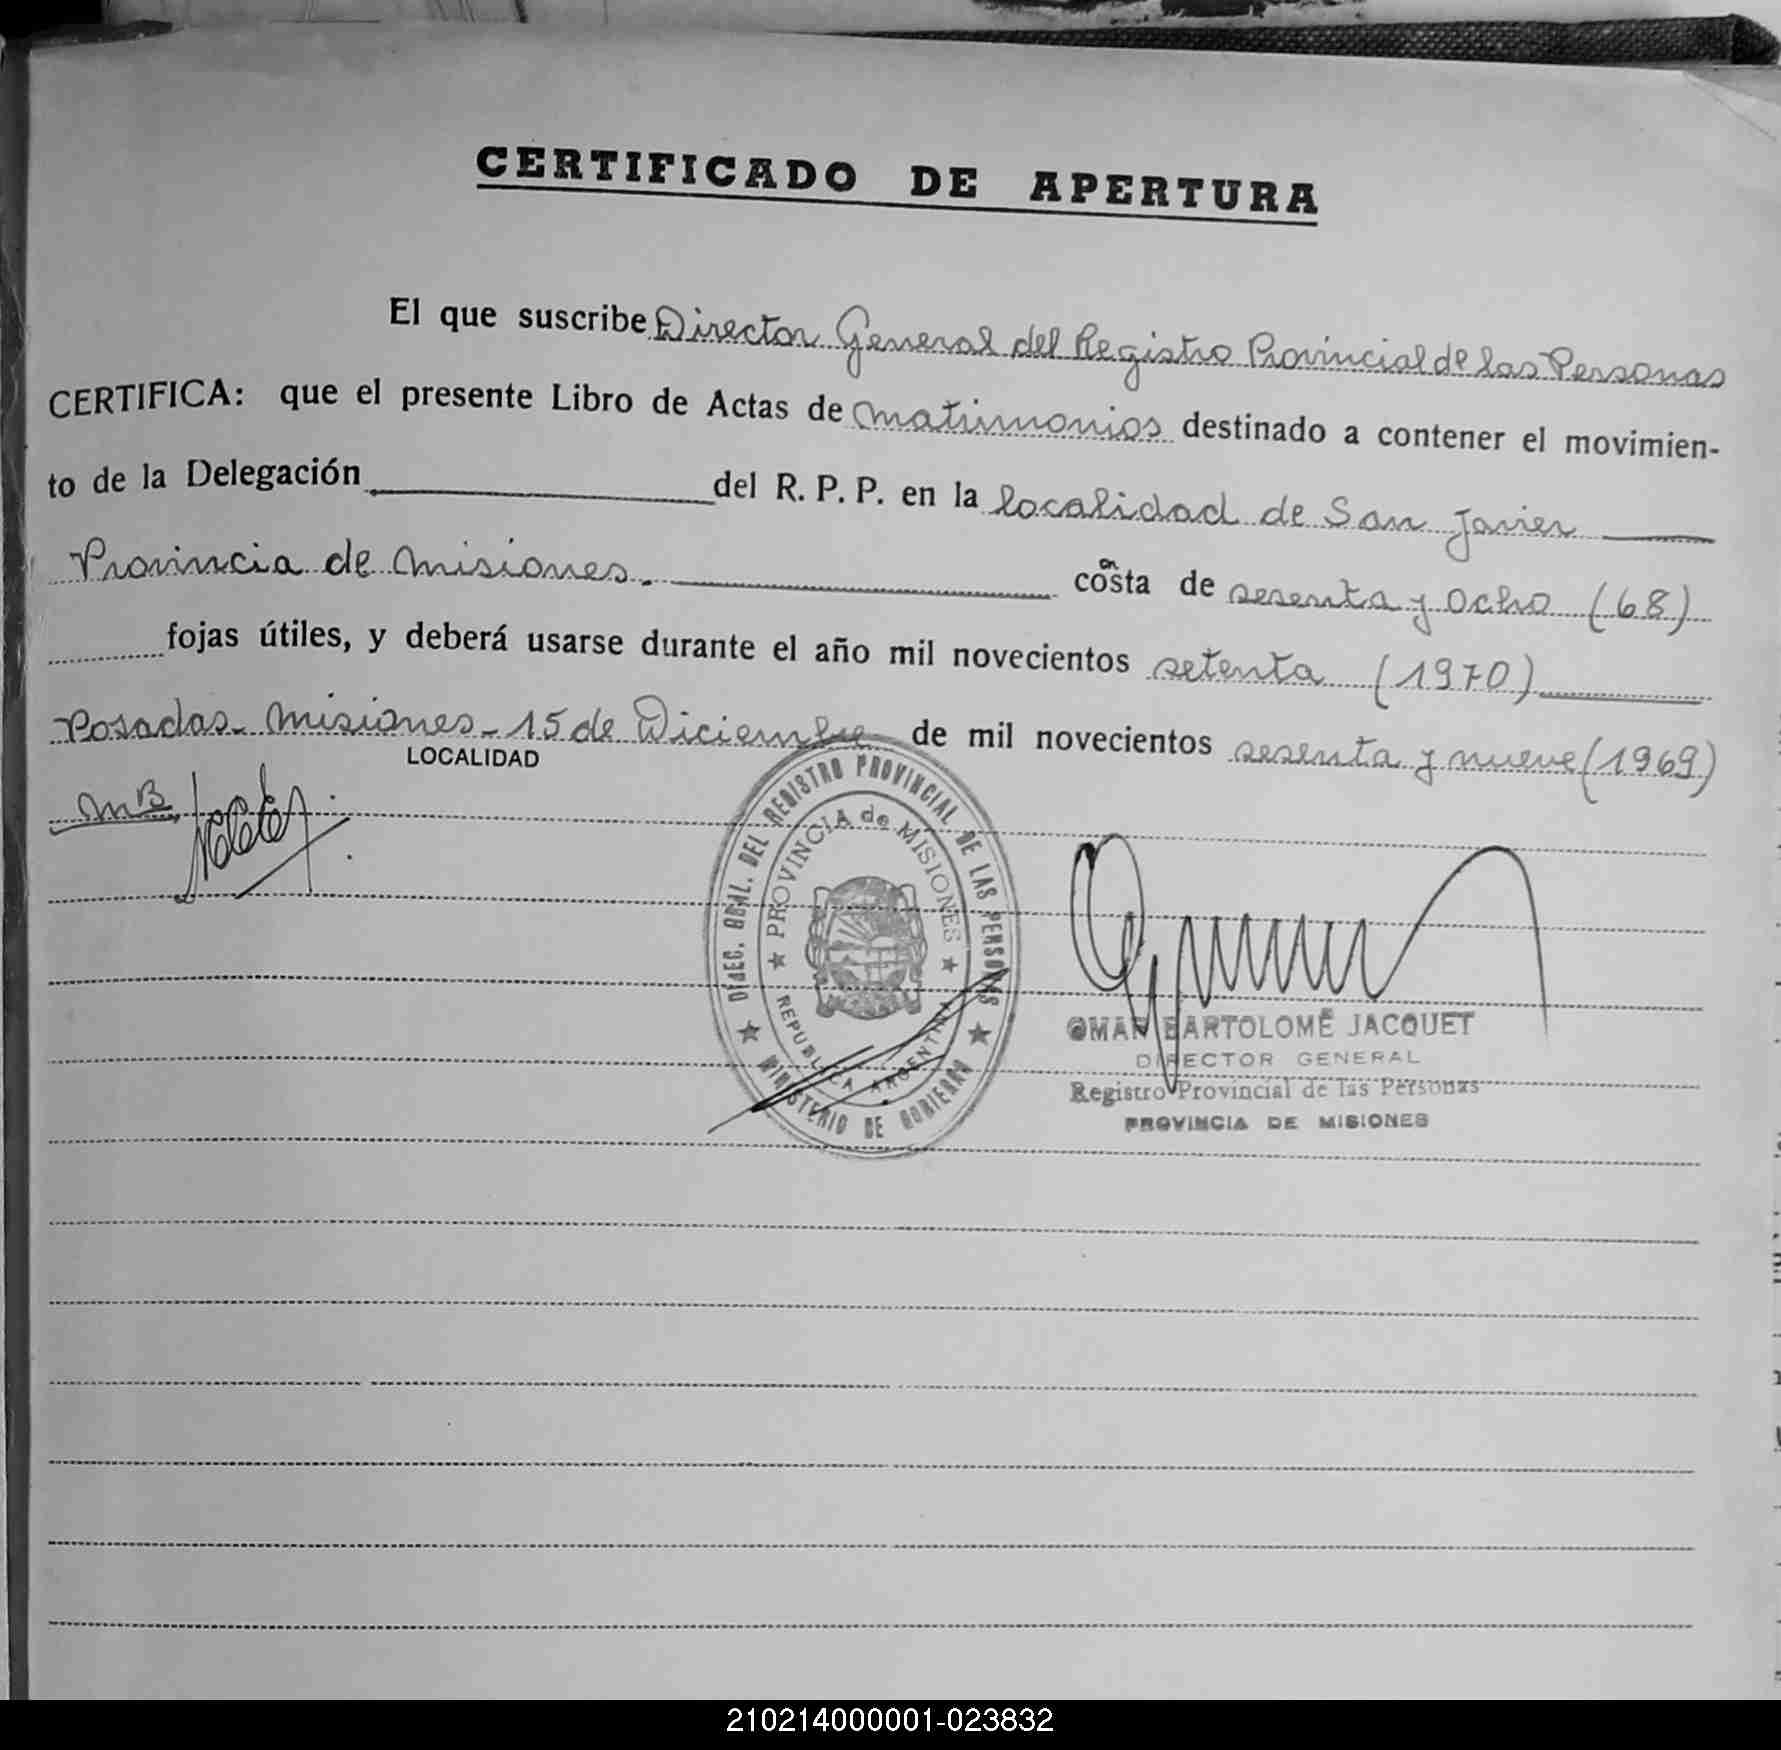 CERTIFICADO DE APERTURA
El que suscribe Director General del Registro Provincial de las Personas
CERTIFICA: que el presente Libro de Actas de Matrimonios destinado a contener el movimien-
to de la Delegación del R. P. P. en la localidad de San Javier
Provincia de Misiones. consta de sesenta y ocho (68)
fojas útiles, y deberá usarse durante el año mil novecientos setenta (1970)
Posadas - Misiones - 15 de Diciembre de mil novecientos sesenta y nueve (1969)
LOCALIDAD
MB.
DIREC. GRAL. DEL REGISTRO PROVINCIAL DE LAS PERSONAS
PROVINCIA de MISIONES
REPUBLICA ARGENTINA
MINISTERIO DE GOBIERNO
OMAR BARTOLOMÉ JACQUET
DIRECTOR GENERAL
Registro Provincial de las Personas
PROVINCIA DE MISIONES
210214000001-023832